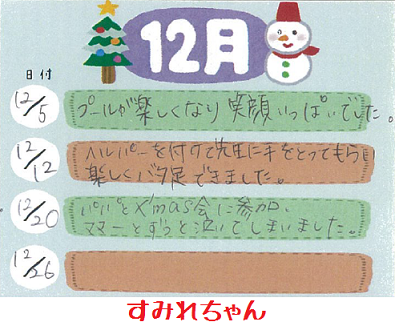 12月
日付
12/5
プールが楽しくなり笑顔いっぱいでした。
12/12
ヘルパーを付けて先生に手をとってもらい
楽しくバタ足できました。
12/20
パパとX'mas会に参加、
ママーとずっと泣いてしまいました。
12/26
すみれちゃん